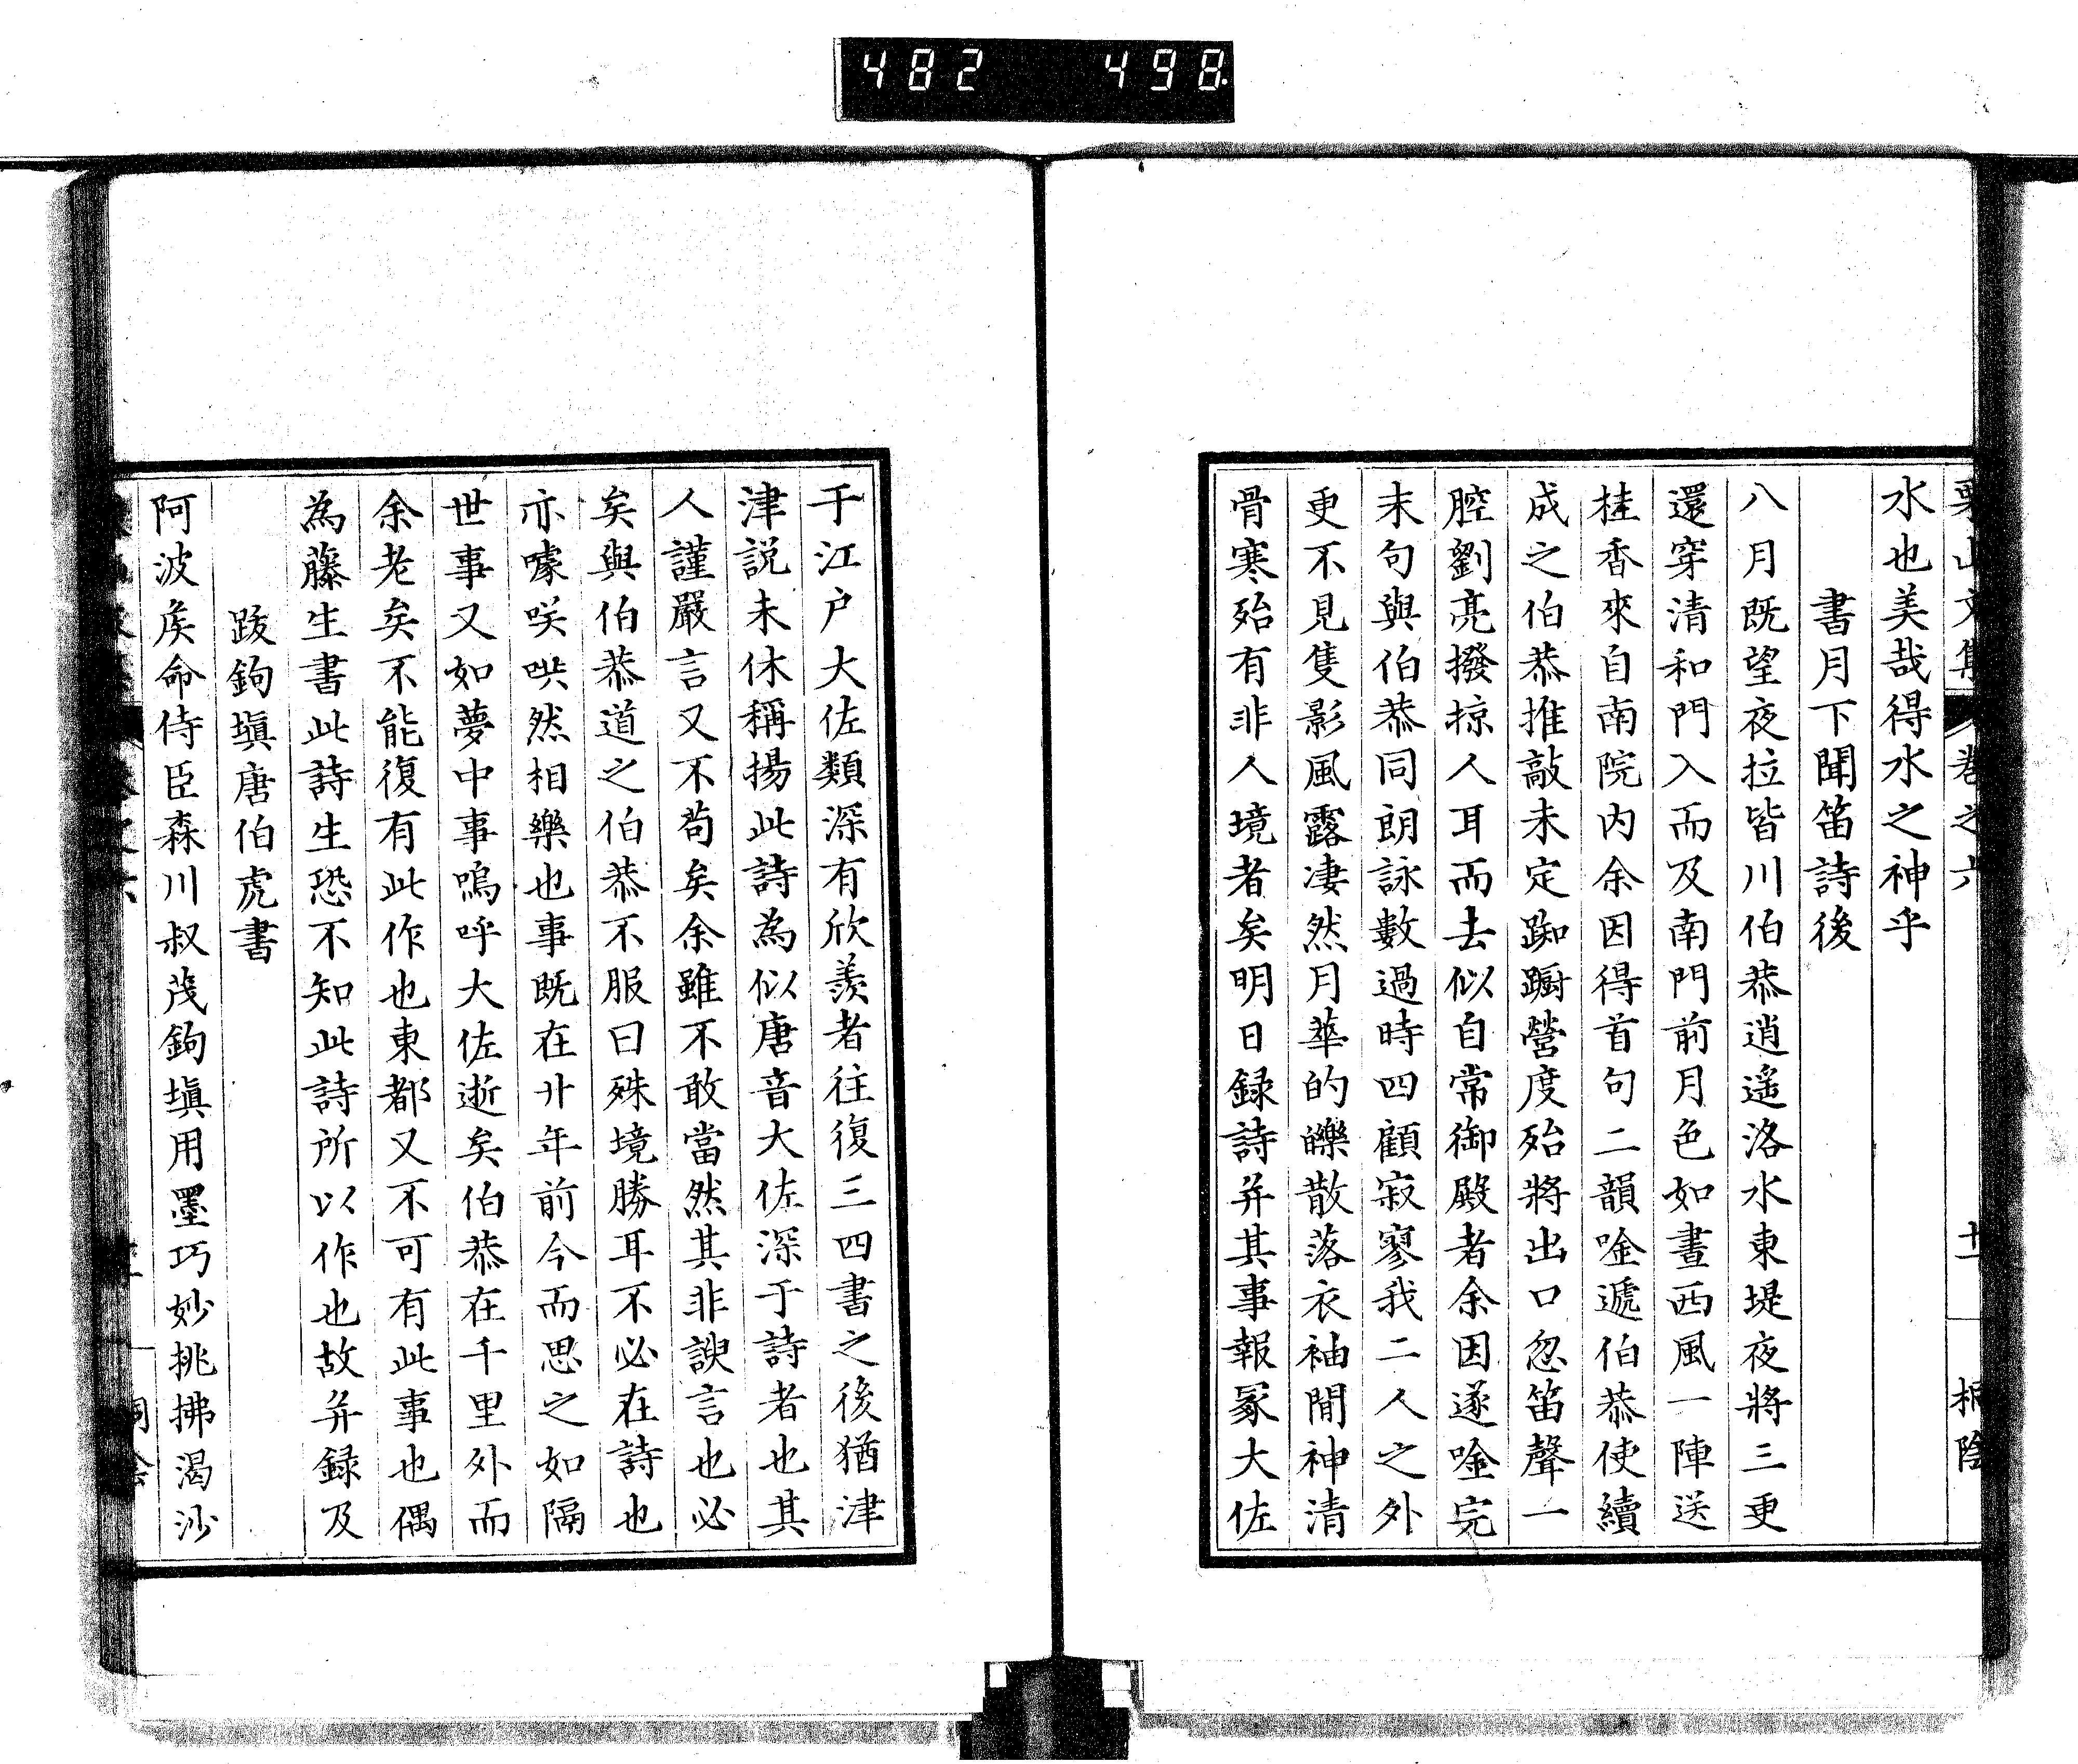 482 498
栗山文集 卷之六 十一 桐陰
水也美哉得水之神乎
書月下聞笛詩後
八月既望夜拉皆川伯恭逍遙洛水東堤夜將三更
還穿清和門入而及南門前月色如晝西風一陣送
桂香來自南院內余因得首句二韻唫遞伯恭使續
成之伯恭推敲未定踟躕營度殆將出口忽笛聲一
腔劉亮撥掠人耳而去似自常御殿者余因遂唫完
末句與伯恭同朗詠數過時四顧寂寥我二人之外
更不見隻影風露凄然月華的皪散落衣袖閒神清
骨寒殆有非人境者矣明日録詩并其事報冢大佐
于江户大佐類深有欣羨者往復三四書之後猶津
津說未休稱揚此詩為似唐音大佐深于詩者也其
人謹嚴言又不苟矣余雖不敢當然其非諛言也必
矣與伯恭道之伯恭不服曰殊境勝耳不必在詩也
亦噱咲哄然相樂也事既在廿年前今而思之如隔
世事又如夢中事嗚呼大佐逝矣伯恭在千里外而
余老矣不能復有此作也東都又不可有此事也偶
為藤生書此詩生恐不知此詩所以作也故并録及
跋鉤塡唐伯虎書
阿波矦命侍臣森川叔茂鉤塡用墨巧妙挑拂渴沙